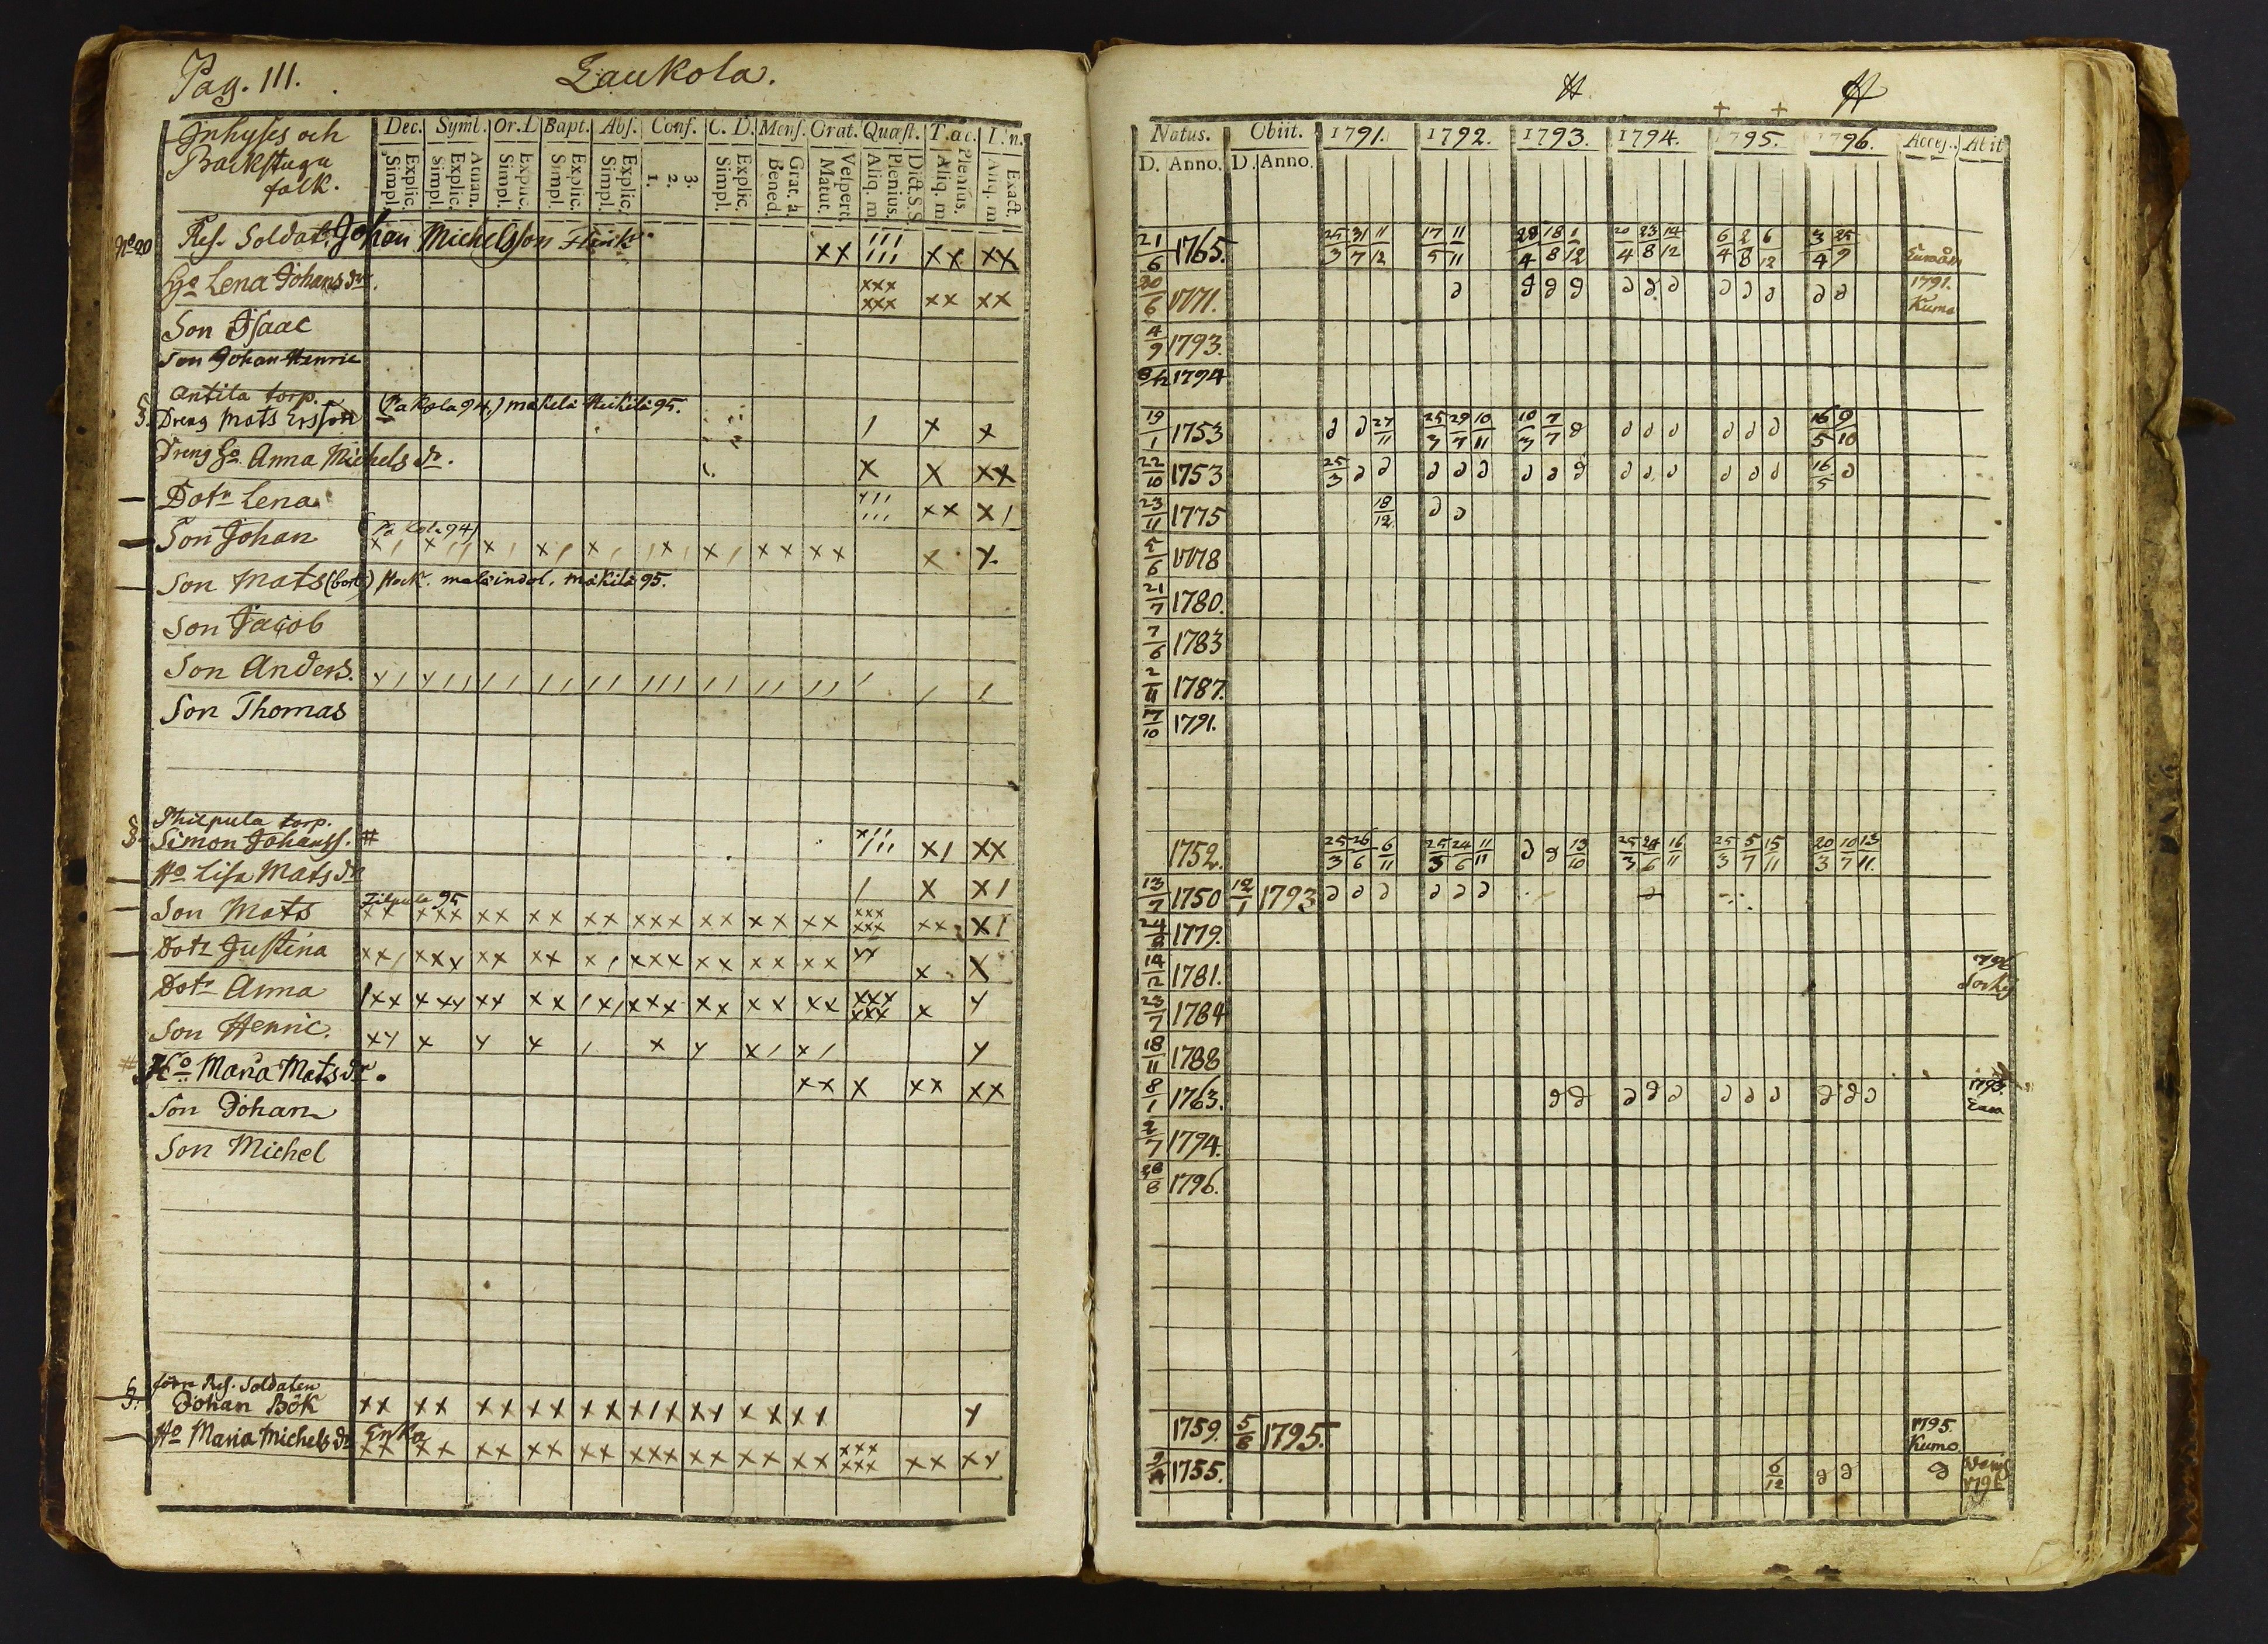 Pag. 111. Laukola.
Inhyses och Backstugu folk.
Dec. Symb. Or. D Bapt. Abs. Conf. C. D. Mens. Orat. Quæst. T. æc. I. n.
Explic. Simpl. Athan. Explic. Simpl. Explic. Simpl. Explic. Simpl. Explic. Simpl. 3. 2. 1. Explic. Simpl. Grat. a. Bened. Vespert. Matut. Dict. S. S. Plenius. Aliq. m. Plenius. Aliq. m. Exact. Aliq. m
No 20 Res. Soldat. Johan Michelsson Flink xx xx xx
Ho Lena Johans dr. xxx xxx xx xx
Son Isaac
Son Johan Henric
Antila torp.
§. Dreng Mats Ersson (Pa Kola 94,) mäkelä Heikilä 95. / x x
Dreng Ho Anna Michels dr. x x xx
Dotr Lena xx x/
Son Johan x x
Son Mats (bort) Hock. mäkilä 95.
Son Jacob
Son Anders.
Son Thomas
Philpula torp.
§. Simon Johanss. # x/ xx
Ho Lisa Mats dr / x x/
Son Mats Zilpula 95 xx xxx xx xx xx xxx xx xx xx xxx xxx xx x/
Dotr Justina
Dotr Anna
Son Henric.
# Ho Maria Mats dr. xx x xx xx
Son Johan
Son Michel
förr Res. Soldaten
§. Johan Bök
Ho Maria Michels dr Enka
Natus. Obiit. 1791. 1792. 1793. 1794. 1795. 1796. Acces. Abit
D. Anno. D. Anno.
21/6 1765. 25/3 31/7 11/12 17/5 11/11 28/4 18/8 1/12 20/4 23/8 14/12 6/4 2/8 6/12 3/4 25/9
20/6 1771. 1791. Kumo
4/9 1793.
1794
19/1 1753 27/11 25/3 29/7 10/11 10/3 7/7 16/5 9/10
22/10 1753 25/3 16/5
23/11 1775 18/12
5/6 1778
21/7 1780.
7/6 1783
2/11 1787.
17/10 1791.
1752. 25/3 26/6 6/11 25/3 24/6 11/11 13/10 25/3 24/6 16/11 25/3 5/7 15/11 20/3 10/7 13/11
13/7 1750 12/1 1793
1779.
14/2 1781. 1796
23/7 1784
18/11 1788
8/1 1763. 1793.
2/7 1794.
28/8 1796.
1759. 5/8 1795. 1795. Kumo.
1755. 6/12 1796